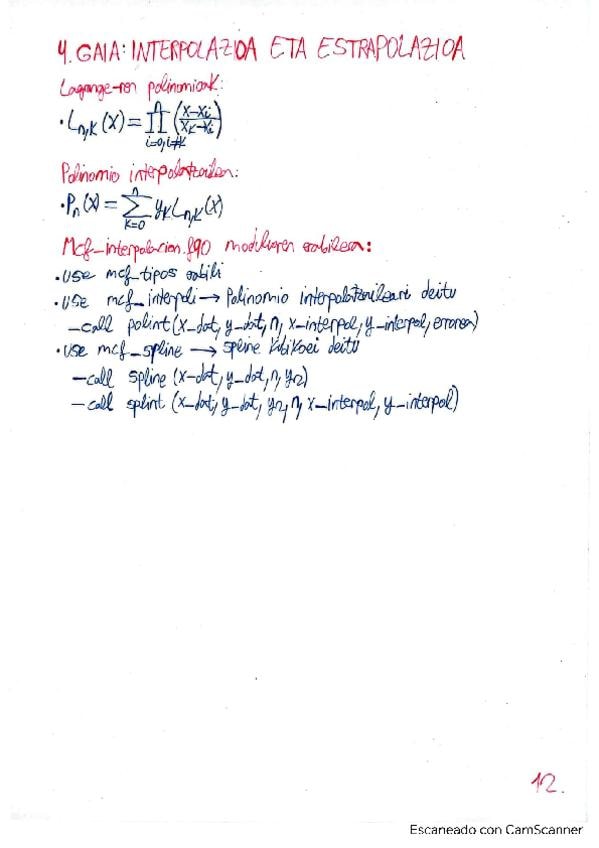 4. GAIA: INTERPOLAZIOA ETA ESTRAPOLAZIOA
Lagrange-ren polinomioak:
· L_{n,k}(x) = ∏_{i=0, i≠k}^{n} ((x-x_i)/(x_k-x_i))
Polinomio interpolatzailea:
· P_n(x) = ∑_{k=0}^{n} y_k L_{n,k}(x)
Mcf_interpolacion.f90 moduluaren erabilera:
· use mcf_tipos erabili
· use mcf_interpoli → Polinomio interpolatzaileari deitu
- call polint (x_dat, y_dat, n, x_interpol, y_interpol, errorea)
· use mcf_spline → spline kubikoei deitu
- call spline (x_dat, y_dat, n, y2)
- call splint (x_dat, y_dat, y2, n, x_interpol, y_interpol)
12.
Escaneado con CamScanner